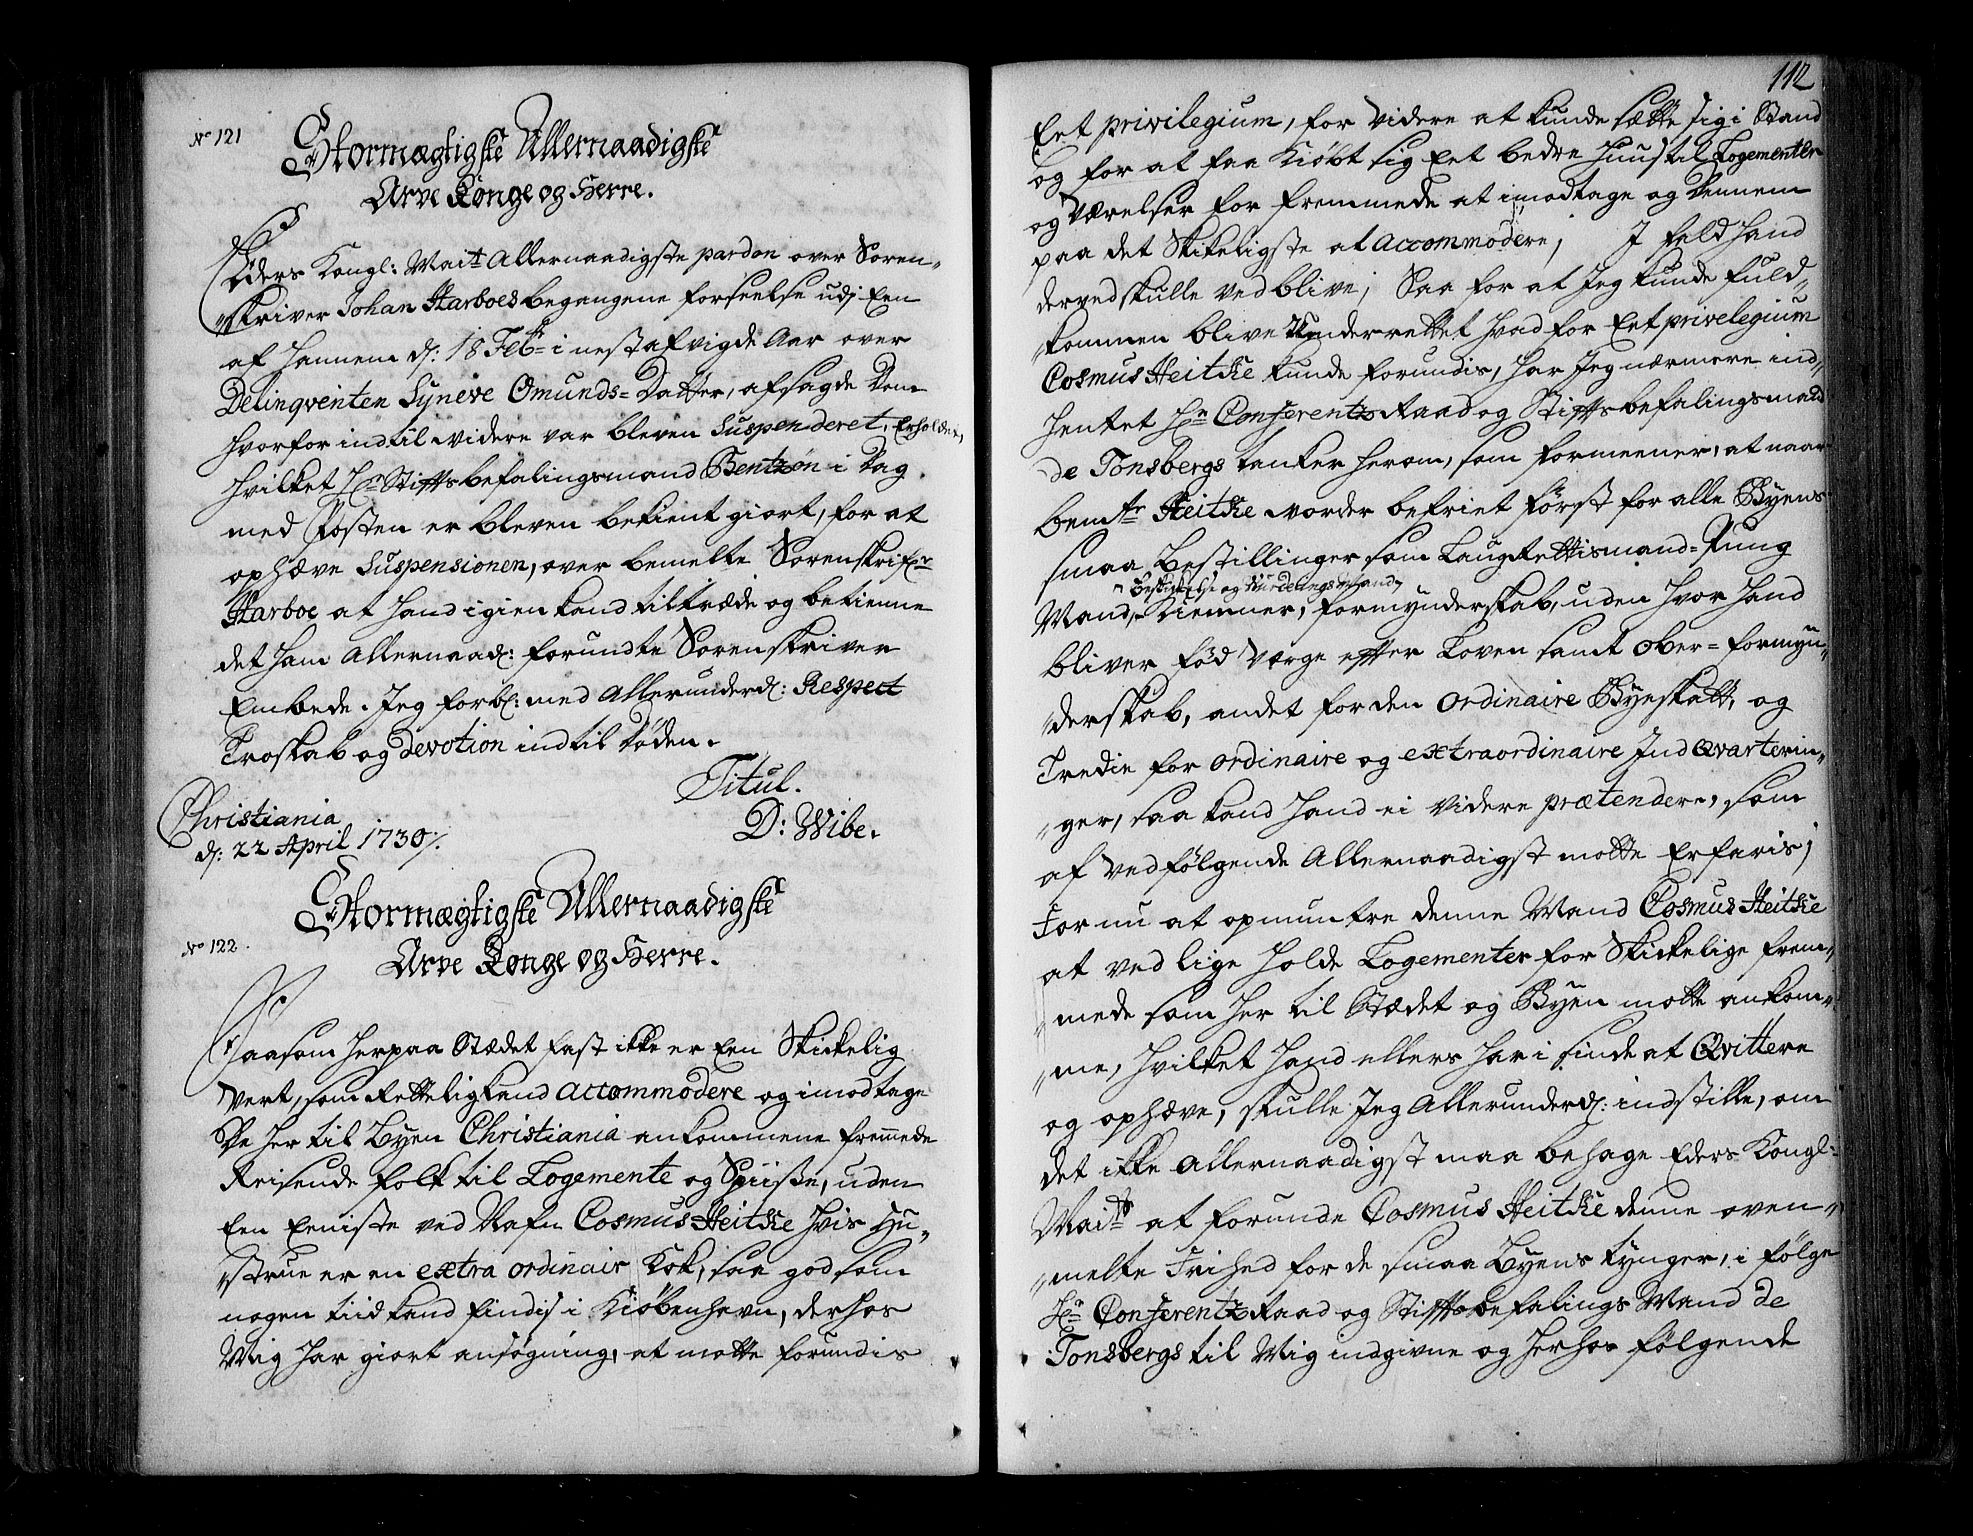 No 121
Stormægtigste Allernaadigste
Arve Konge og Herre.
Eders Kongl: Mait Allernaadigste pardon over Soren,,
,,skriver Johan Harboes begangene forseelse udj Een
af hannem d: 18 Febr i nest afvigde Aar over
Delinqventen Syneve Omunds=Datter, afsagde Dom
hvorfor indtil videre var bleven Suspenderet, Erholdet,
hvilket Hr Stiftsbefalingsmand Bentzön i Dag
med Posten er bleven bekient giort, for at
ophæve Suspensionen, over bemelte Sorenskrifr
Harboe at hand igien kand tiltræde og betienne
det ham Allernaad: forundte Sorenskriver
Embede. Jeg forbl: med Allerunderd: Respect
Troskab og Devotion indtil døden.
Titul.
D: Wibe.
Christiania
d: 22 April 1730/.
Stormægtigste Allernaadigste
No 122.
Arve Konge og Herre.
Saasom herpaa Stædet fast ikke er Een Skickelig
Vert, som Retteligkand accommodere og imodtage
De her til Byen Christiania ankommene fremmede
Reisende folk til Logemente og Spiisse, uden
Een Eeniste ved Nafn Cosmus Heitke hvis Hu,,
,,strue er en extra ordinair Kok, saa god som
nogen tiid kand findis i Kiøbenhavn, derhos
Mig har giort ansøgning, at motte forundis
112
Eet privilegium, for videre at kunde sætte sig i Stand
og for at faa Kiøbt sig Eet bedre Huus til Logementer
og Værelser for fremmede at imodtage og dennem
paa det Skikeligste at accommodere; J fald hand
derved skulle ved blive; Saa for at Jeg kunde fuld,,
,,kommen blive Underrettet hvad for Eet privelegium
Cosmus Heitke kunde forundis, har Jeg nærmere ind,,
hentet Hr Conferentz Raad og Stiftsbefalingsmand
de Tonsbergs tanker herom, som formeener, at naar
bemte Heitke vorder befriet først for alle Byens
smaa Bestillinger som Laugrettismand=Tung
Beskikelse og Vurderingsmand
Mand, Kiemner, formynderskab, uden hvor hand
bliver fød Værge efter Loven samt ober=formyn,,
,,derskab, andet for den ordinaire Byeskatt, og
Tredie for ordinaire og extraordinaire IndQvarterin,,
,,ger, saa kand hand ei videre prætendere, som
af vedfølgende Allernaadigst motte Erfaris;
For nu at opmuntre denne Mand Cosmus Heitke
at ved lige holde Logementer for Skickelige frem,,
,,mede som her til Stædet og Byen motte ankom,,
,,me, hvilket hand ellers har i sinde at Qvittere
og ophæve, skulle Jeg Allerunderd: indstille, om
det ikke Allernaadigst maa behage Eders Kongl:
Maitt at forunde Cosmus Heitke denne oven,,
,,melte Frihed for de smaa Byens tynger, i følge
Hr Conferentz Raad og Stiftsbefalings Mand de
Tonsbergs til Mig indgivne og herhos følgende